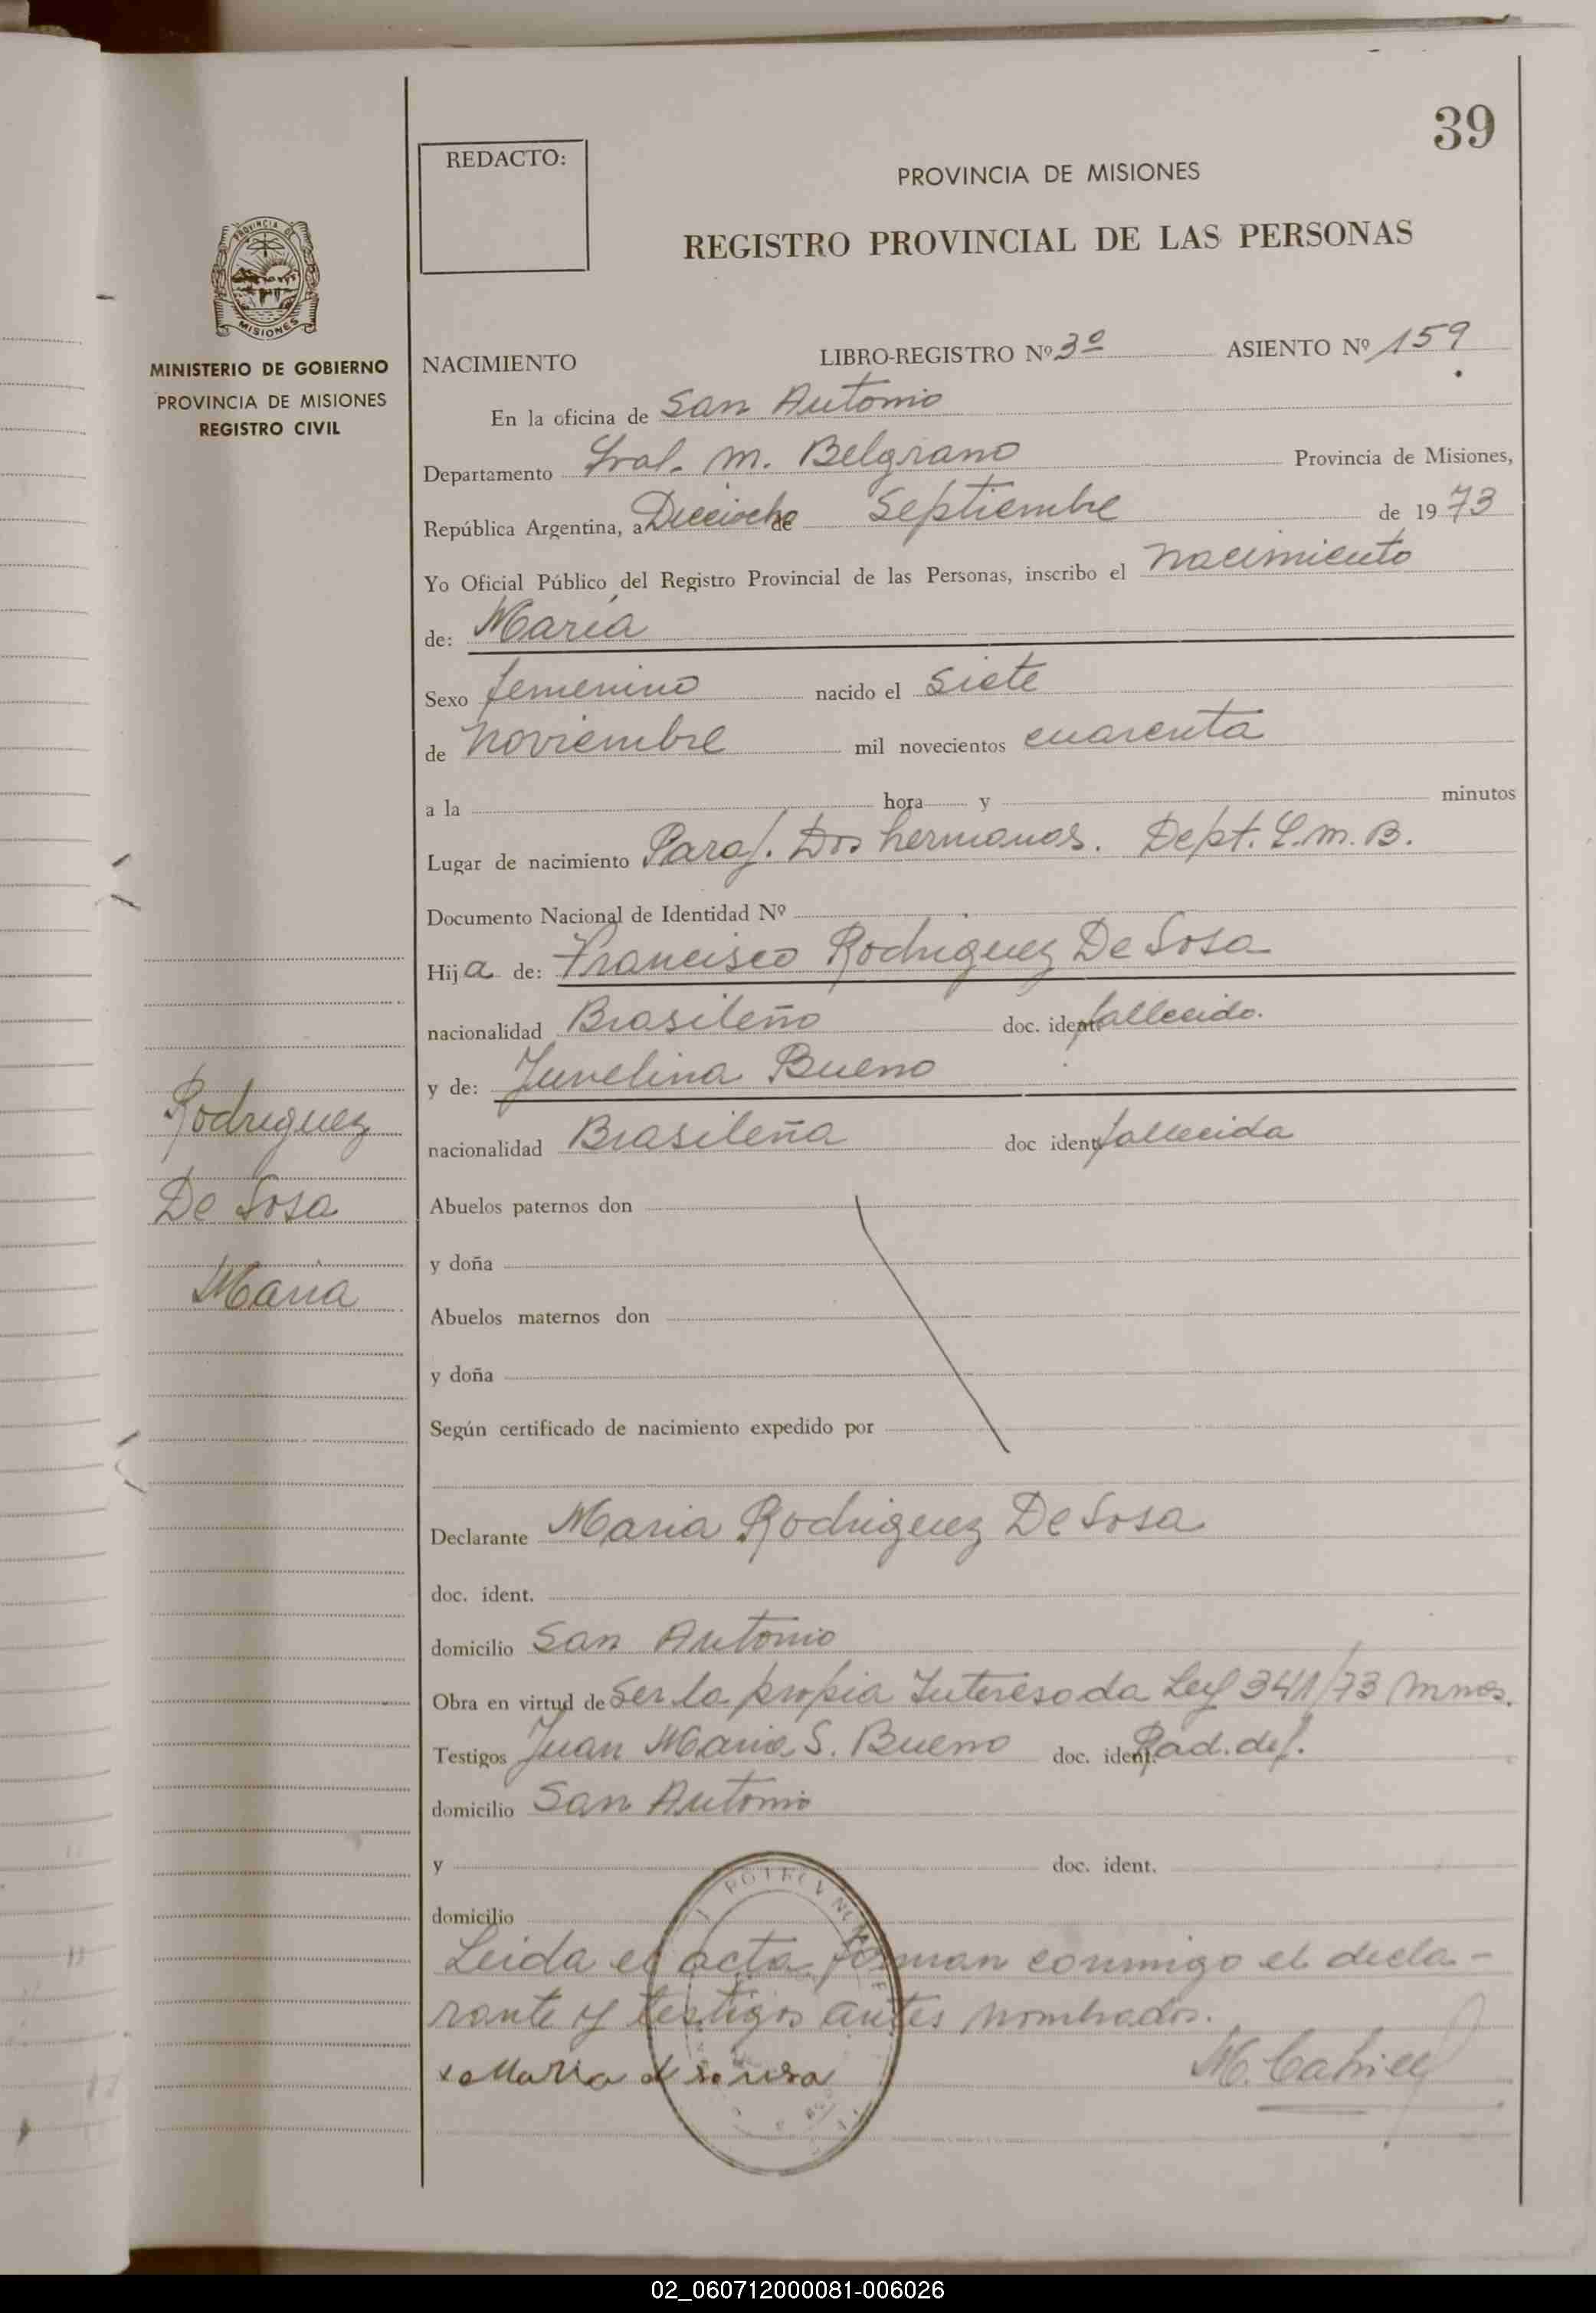 39
REDACTO:
PROVINCIA DE MISIONES
REGISTRO PROVINCIAL DE LAS PERSONAS
PROVINCIA DE
MISIONES
MINISTERIO DE GOBIERNO
PROVINCIA DE MISIONES
REGISTRO CIVIL
NACIMIENTO LIBRO-REGISTRO Nº 3º ASIENTO Nº 159
En la oficina de San Antonio
Departamento Gral. M. Belgrano Provincia de Misiones,
República Argentina, a Dieciocho de Septiembre de 1973
Yo Oficial Público del Registro Provincial de las Personas, inscribo el nacimiento
de: María
Sexo femenino nacido el siete
de noviembre mil novecientos cuarenta
a la hora y minutos
Lugar de nacimiento Paraj. Dos hermanas. Dept. G.M.B.
Documento Nacional de Identidad Nº
Hija de: Francisco Rodriguez De Sosa
nacionalidad Brasileño doc. ident. fallecido.
y de: Juvelina Bueno
nacionalidad Brasileña doc ident. fallecida
Rodriguez
De Sosa
Maria
Abuelos paternos don
y doña
Abuelos maternos don
y doña
Según certificado de nacimiento expedido por
Declarante Maria Rodriguez De Sosa
doc. ident.
domicilio San Antonio
Obra en virtud de Ser la propia Interesada Ley 341/73 Mnes.
Testigos Juan Maria S. Bueno doc. ident. Rad. def.
domicilio San Antonio
y doc. ident.
domicilio
Leida el acta firman conmigo el decla-
rante y testigos antes nombrados.
x Maria de souza
02_060712000081-006026